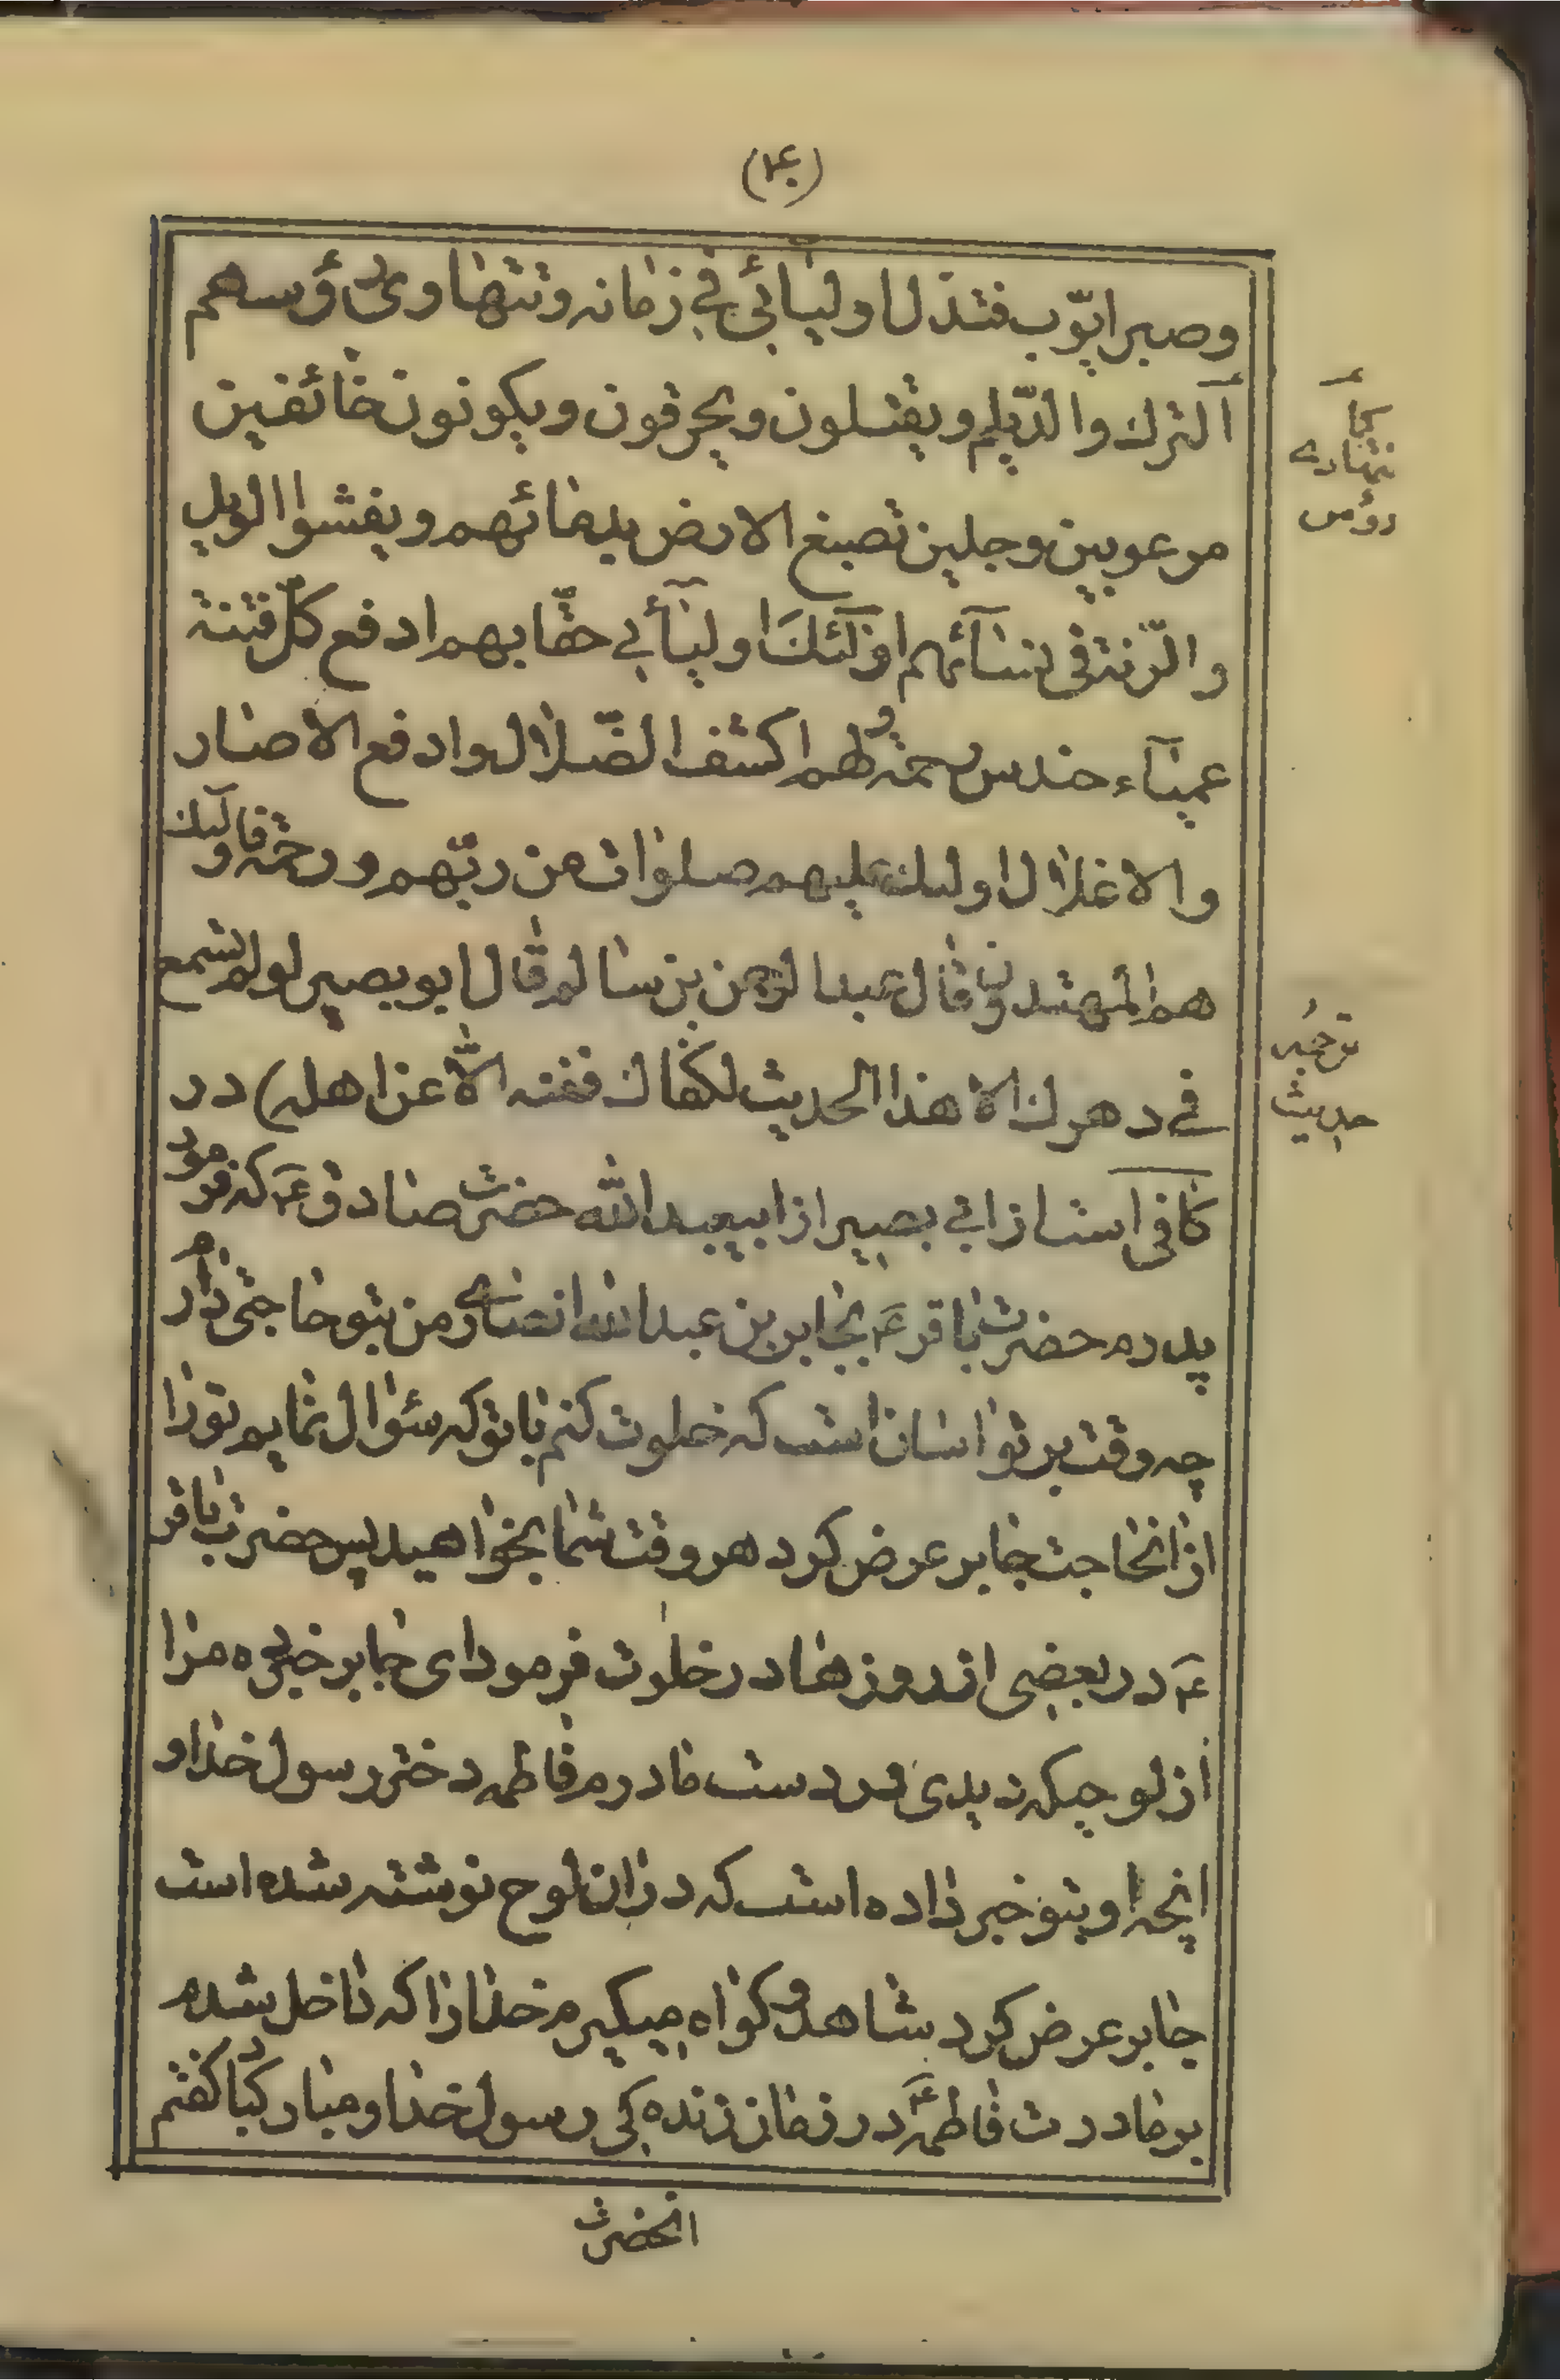 (۴۰)
وصبر ایّوب فتذلّ اولیائی فی زمانه و تتهادی رؤسهم
کما
تتهادی
رؤس
الترک والدّیلم ویقتلون ویحرقون ویکونون خائفین
مرعوبین وجلین تصبغ الارض بدمائهم ویفشوا الویل
والرّنة فی نسآئهم اولٓئک اولیآئی حقّا بهم ادفع کلّ فتنة
عمیآء حندس بهم اکشف الضّلال وادفع الاصار
والاغلال اولئک علیهم صلوات من ربّهم ورحمة واولٓئک
هم المهتدون قال عبدالرحمن بن سالم قال ابوبصیر لو لم تسمع
فی دهرک الا هذا الحدیث لکفاک فصنه الّا عن اهله) در
ترجمه
حدیث
کافی است از ابی بصیر از ابیعبدالله حضرت صادق ع که فرمود
پدرم حضرت باقر ع بجابر بن عبدالله انصاری من بتو حاجتی دارم
چه وقت بر تو اسان است که خلوت کنم با تو که سئوال نمایم تو را
از انحاجت جابر عرض کرد هر وقت شما بخواهید پس حضرت باقر
ع در بعضی از روزها در خلوت فرمود ای جابر خبر ده مرا
از لوحیکه دیدی در دست مادرم فاطمه دختر رسول خدا و
انچه او بتو خبر داده است که در ان لوح نوشته شده است
جابر عرض کرد شاهد و کواه میکیرم خدا را که داخل شدم
بر مادرت فاطمه ع در زمان زنده کی رسول خدا و مبارکباد کفتم
انحضرت